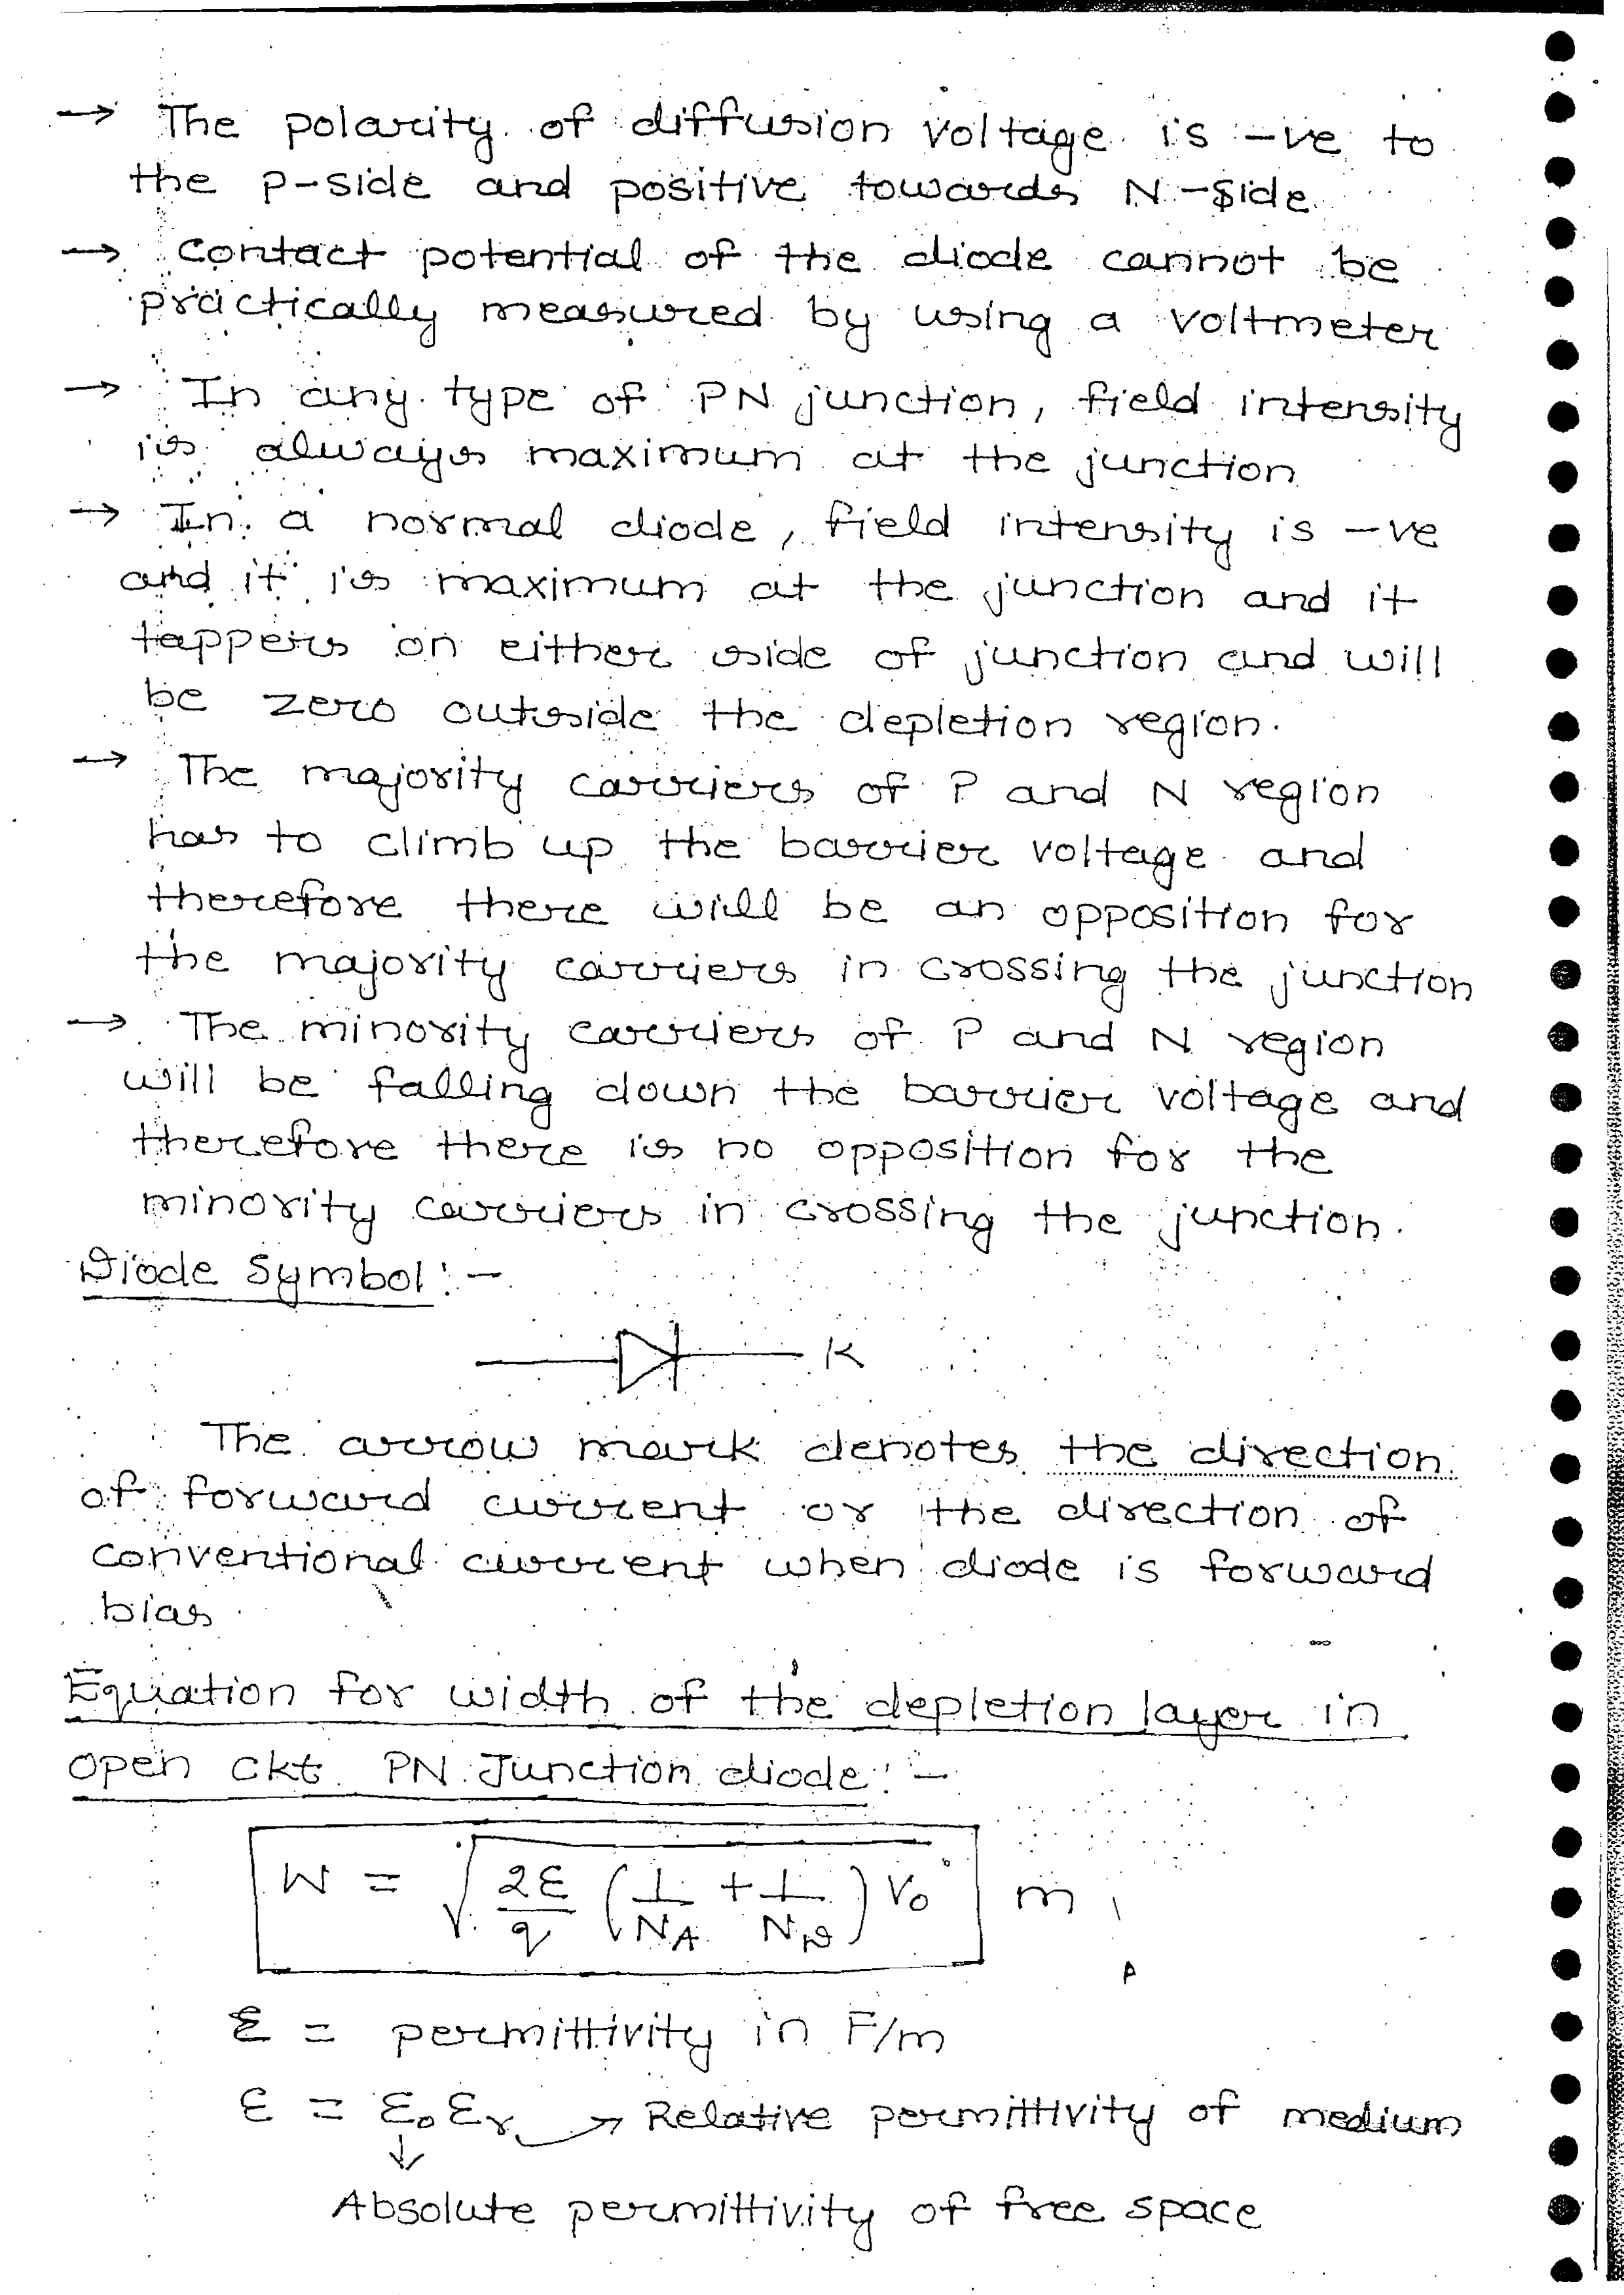 → The polarity of diffusion voltage is -ve to
the P-side and positive towards N-side
→ Contact potential of the diode cannot be
practically measured by using a voltmeter
→ In any type of PN junction, field intensity
is always maximum at the junction
→ In a normal diode, field intensity is -ve
and it is maximum at the junction and it
tappers on either side of junction and will
be zero outside the depletion region.
→ The majority carriers of P and N region
has to climb up the barrier voltage and
therefore there will be an opposition for
the majority carriers in crossing the junction
→ The minority carriers of P and N region
will be falling down the barrier voltage and
therefore there is no opposition for the
minority carriers in crossing the junction.
Diode Symbol:-
K
The arrow mark denotes the direction
of forward current or the direction of
conventional current when diode is forward
bias
Equation for width of the depletion layer in
open ckt PN Junction diode:-
W = √(2ε/q (1/N_A + 1/N_D) V_0) m
ε = permittivity in F/m
ε = ε_0 ε_r → Relative permittivity of medium
↓
Absolute permittivity of free space